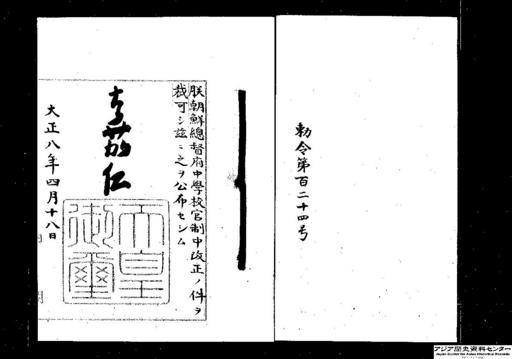 勅令第百二十四号
朕朝鮮總督府中學校官制中改正ノ件ヲ
裁可シ玆ニ之ヲ公布セシム
嘉仁
天皇
御璽
大正八年四月十八日
アジア歴史資料センター
Japan Center for Asian Historical Records